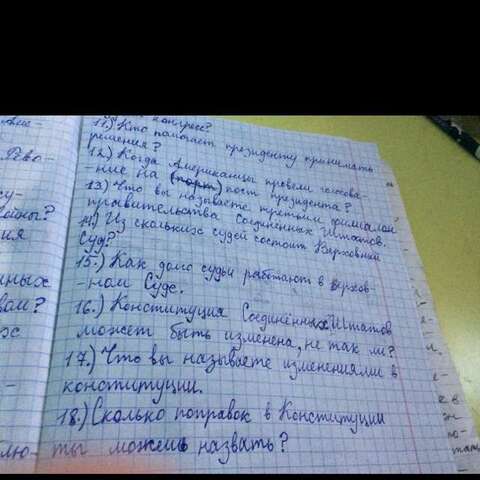 конгресс?
11.) Кто помогает президенту принимать
решения?
12.) Когда Американцы провели голосова-
-ние на (порт) пост президента?
13.) Что вы называете третьим филиалом
правительства Соединённых Штатов.
14.) Из скольких судей состоит Верховний
Суд?
15.) Как долго судьи работают в верхов-
-ном Суде.
16.) Конституция Соединённых Штатов
может быть изменена, не так ли?
17.) Что вы называете изменениями в
конституции.
18.) Сколько поправок в Конституции
ты можешь назвать?